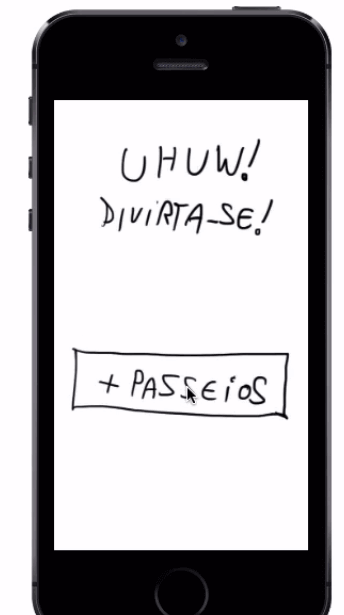 UHUW!
DIVIRTA-SE!
+ PASSEIOS